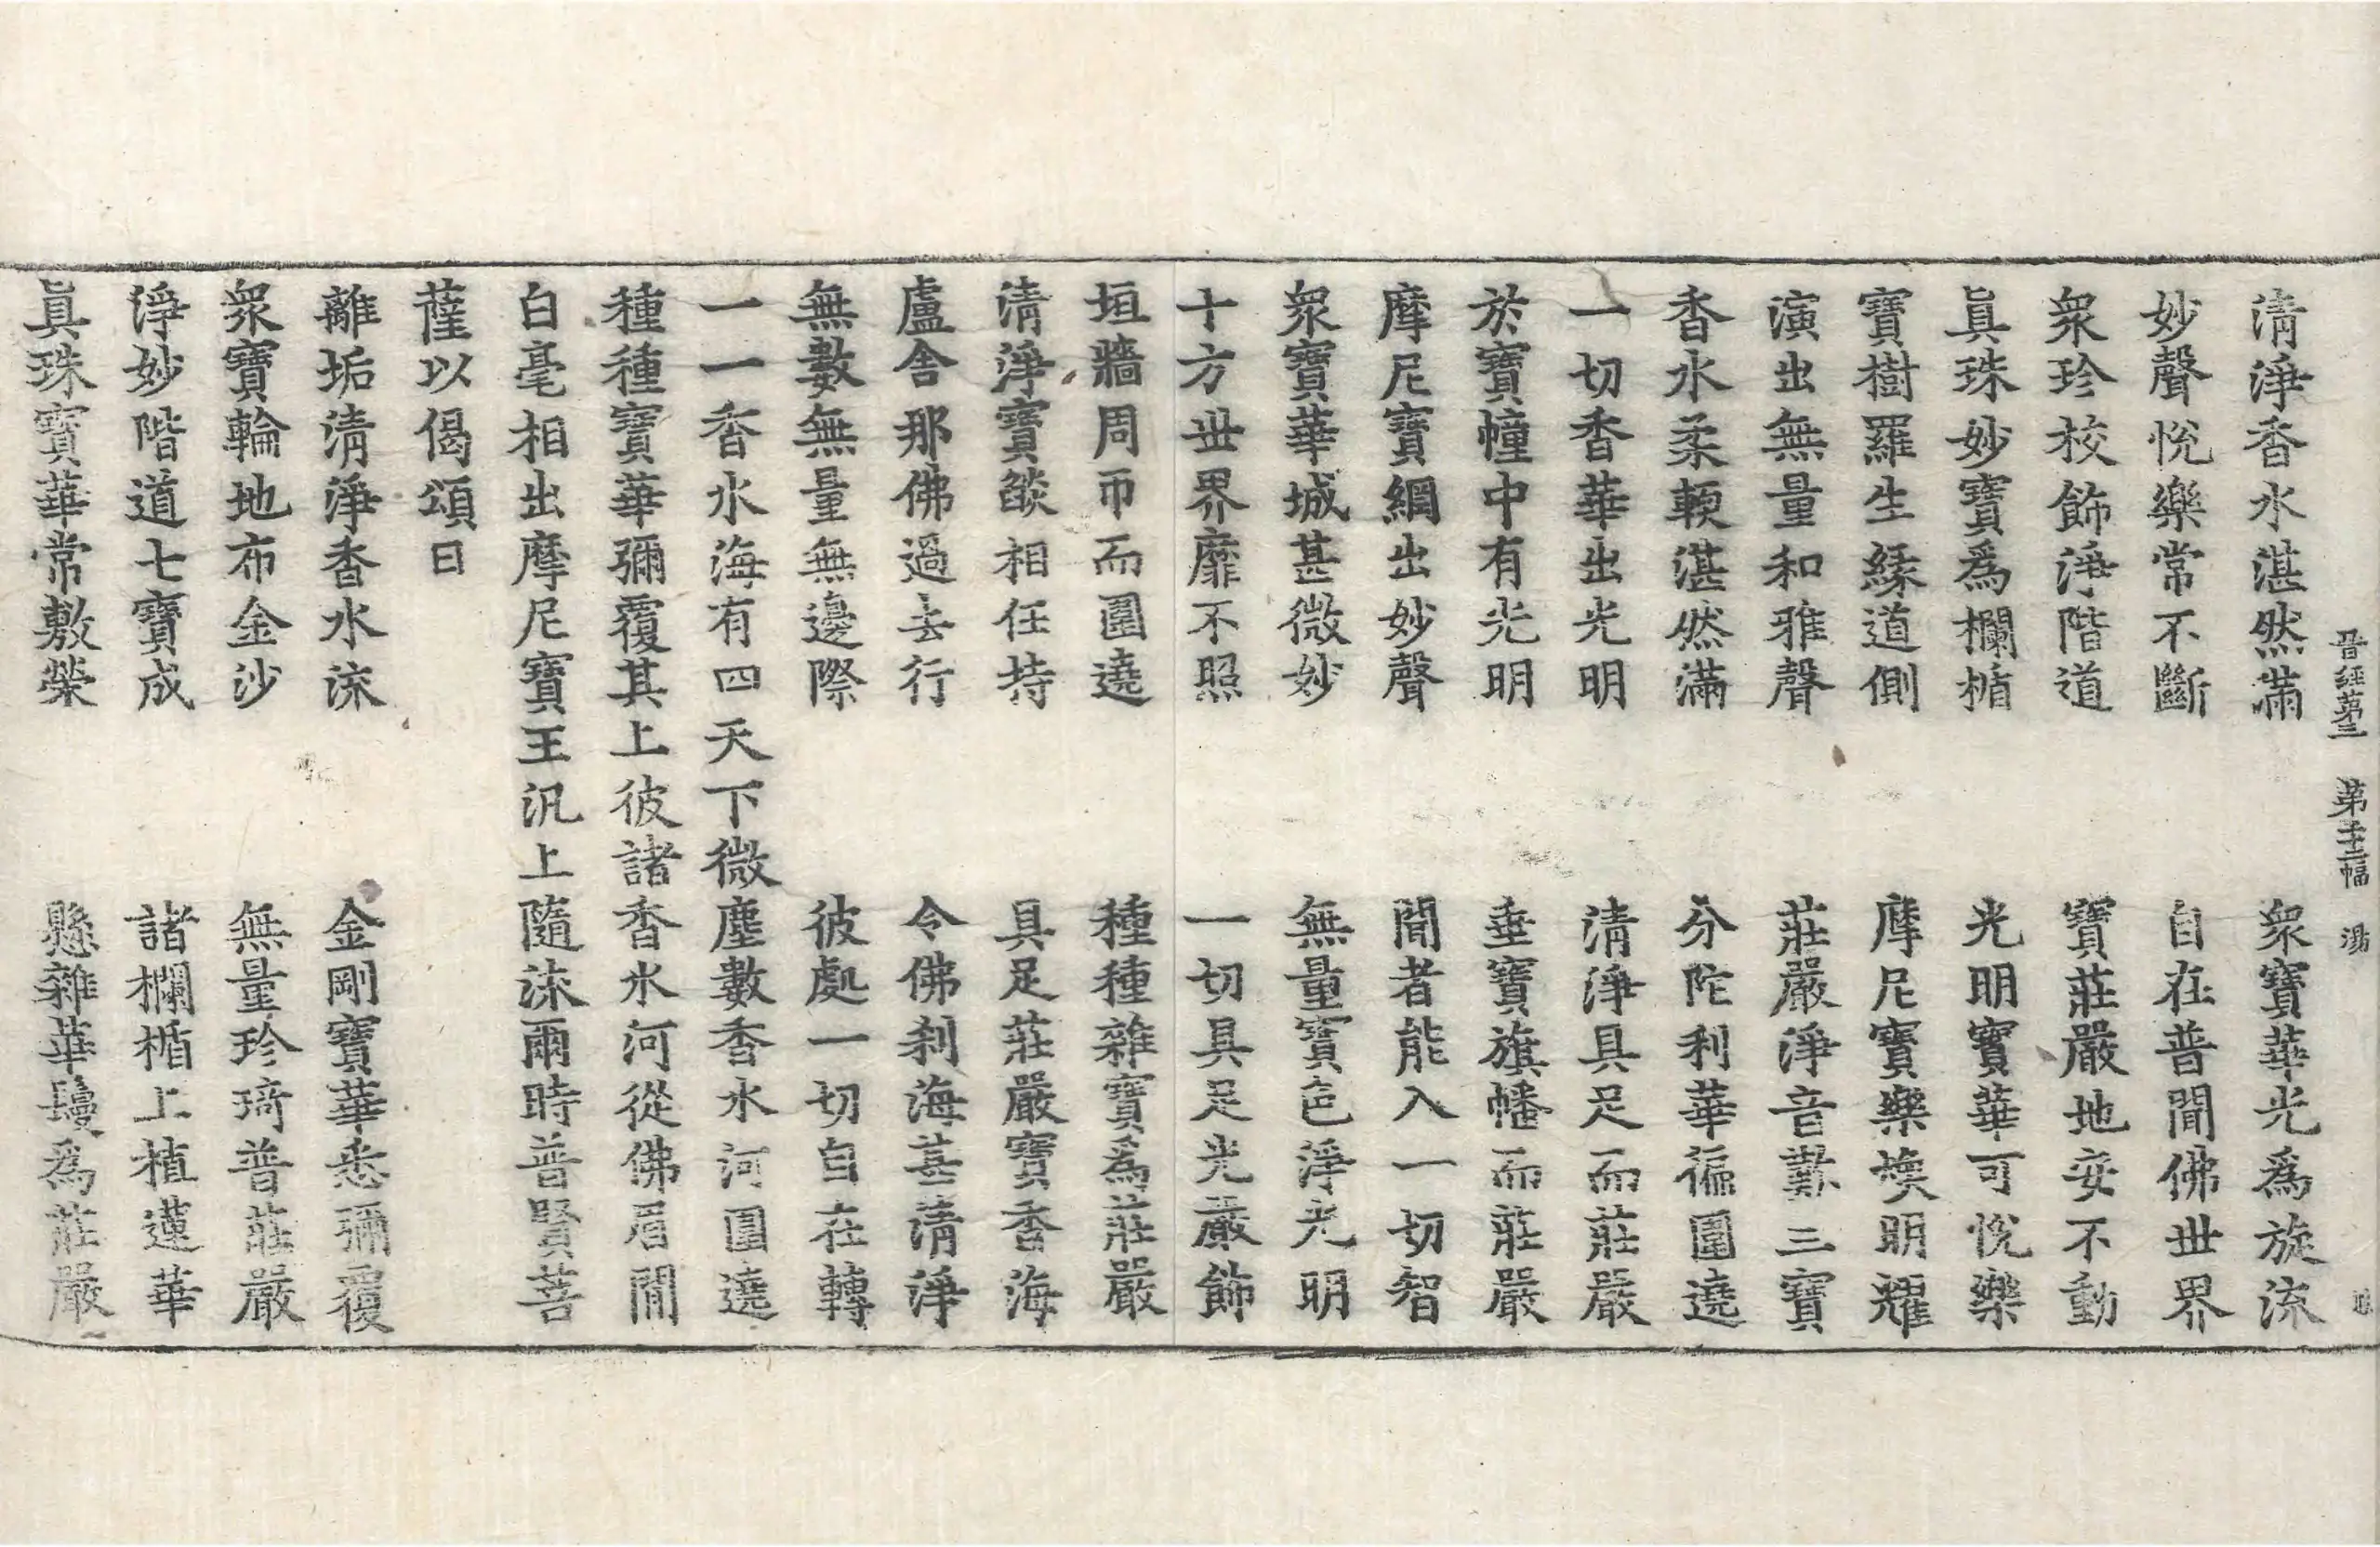 晉經第三　第十二幅　湯
清淨香水湛然滿　衆寶華光爲旋流
妙聲悅樂常不斷　自在普聞佛世界
衆珍校飾淨階道　寶莊嚴地安不動
眞珠妙寶爲欄楯　光明寶華可悅樂
寶樹羅生緣道側　摩尼寶樂煥明耀
演出無量和雅聲　莊嚴淨音歎三寶
香水柔輭湛然滿　分陀利華徧圍遶
一切香華出光明　清淨具足而莊嚴
於寶幢中有光明　垂寶旗幡而莊嚴
摩尼寶網出妙聲　聞者能入一切智
衆寶華城甚微妙　無量寶色淨光明
十方世界靡不照　一切具足光嚴飾
垣牆周帀而圍遶　種種雜寶爲莊嚴
清淨寶燄相任持　具足莊嚴寶香海
盧舍那佛過去行　令佛刹海甚清淨
無數無量無邊際　彼處一切自在轉
一一香水海有四天下微塵數香水河圍遶
種種寶華彌覆其上彼諸香水河從佛眉間
白毫相出摩尼寶王汎上隨流爾時普賢菩
薩以偈頌曰
離垢清淨香水流　金剛寶華悉彌覆
衆寶輪地布金沙　無量珍琦普莊嚴
淨妙階道七寶成　諸欄楯上植蓮華
眞珠寶華常敷榮　懸雜華鬘爲莊嚴